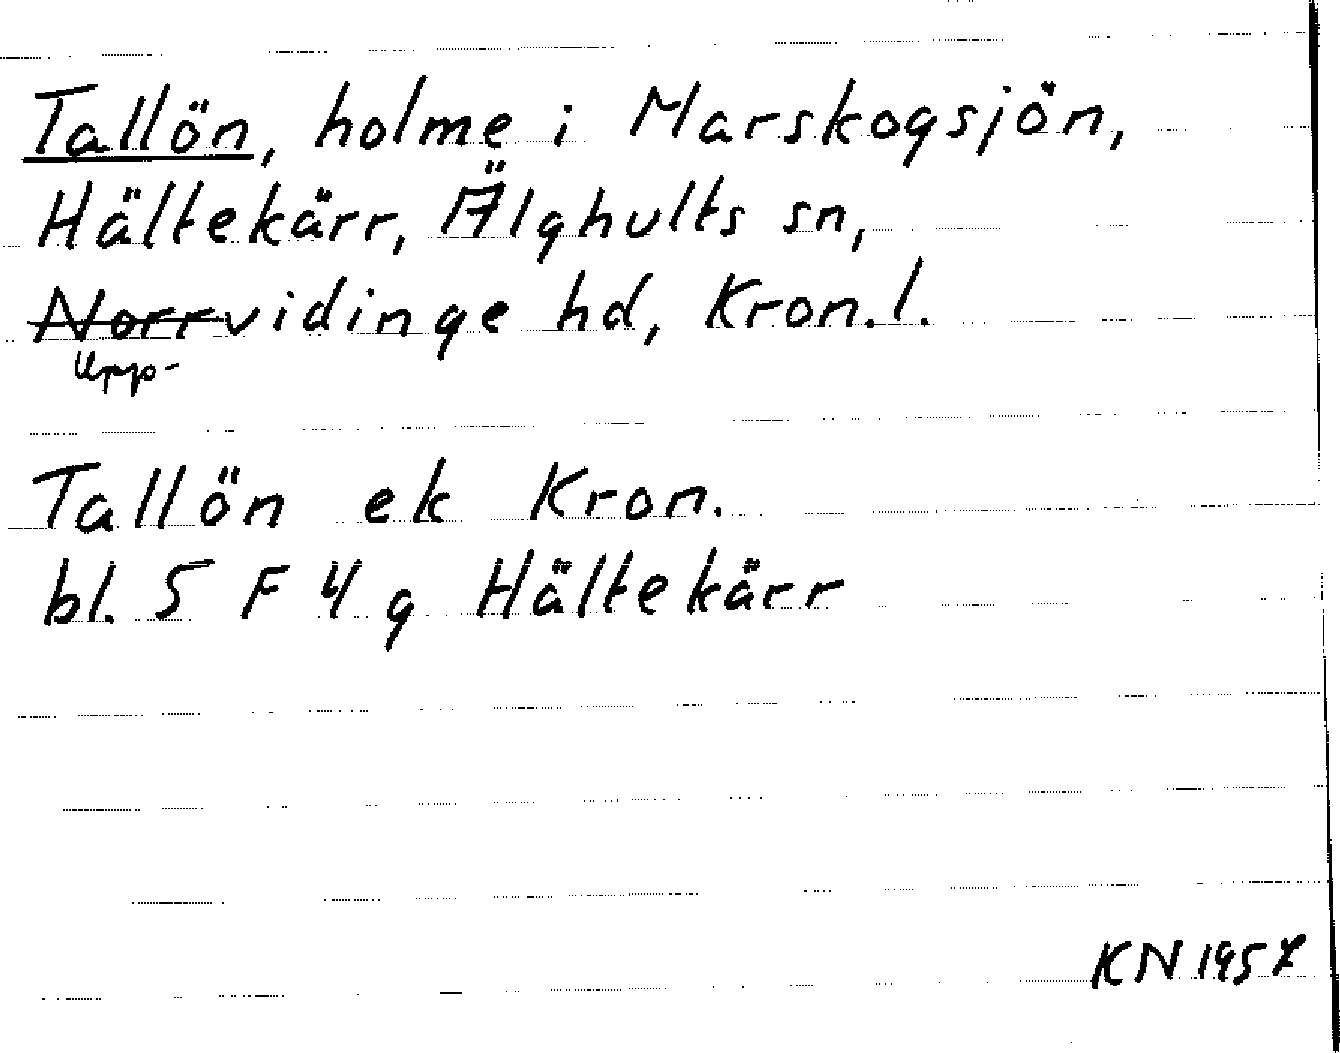 Tallön, holme i Marskogsjön,
Hältekärr, Älghults sn,
Norrvidinge hd, Kron.l.
Upp-
Tallön ek Kron.
bl. 5 F 4 g Hältekärr
KN 1957